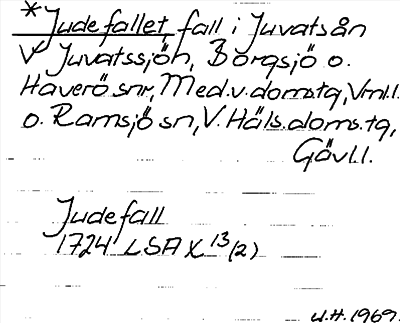 *Judefallet, fall i Juvatsån
V Juvatssjön, Borgsjö o.
Haverö snr, Med.v.domstg, Vrnl.l.
o. Ramsjö sn, V. Häls.doms.tg,
Gävl.l.
Judefall
1724 LSA X 13/(2)
U.H. 1969.